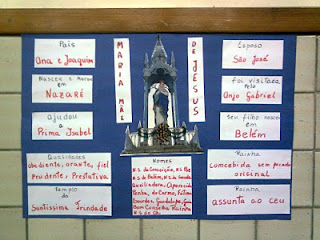 Pais
Ana e Joaquim
Nasceu e morou
em
Nazaré
Ajudou
a
Prima Isabel
Qualidades
obediente, orante, fiel
Prudente, Prestativa
Templo
da
Santíssima Trindade
MARIA MÃE
DE JESUS
Nomes
N.S da Conceição, N.S
N.S de Fátima, N.S da
Auxiliadora, Aparecida
Penha, do Carmo, Fátima
Lourdes, Guadalupe,
Bom Conselho, Rainha
N.S do Ó
Esposo
São José
Foi visitada
pelo
Anjo Gabriel
Seu filho nasceu
em
Belém
Rainha
concebida sem pecado
original
Rainha
assunta ao céu